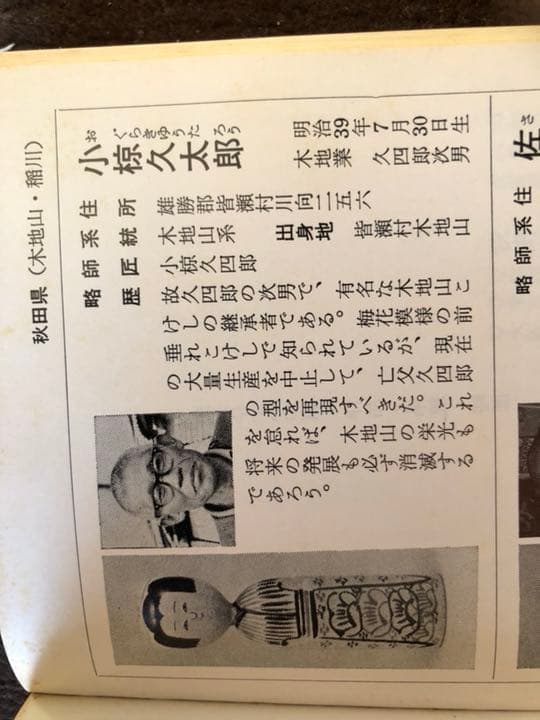 秋田県（木地山・稲川）
お ぐらきゆうた ろう
小椋久太郎
明治39年7月30日生
木地業 久四郎次男
住所 雄勝郡皆瀬村川向二五六
系統 木地山系 出身地 皆瀬村木地山
師匠 小椋久四郎
略歴 故久四郎の次男で、有名な木地山こ
けしの継承者である。梅花模様の前
垂れこけしで知られているが、現在
の大量生産を中止して、亡父久四郎
の型を再現すべきだ。これ
を怠れば、木地山の栄光も
将来の発展も必ず消滅する
であろう。
さ
佐
住
系
師
略